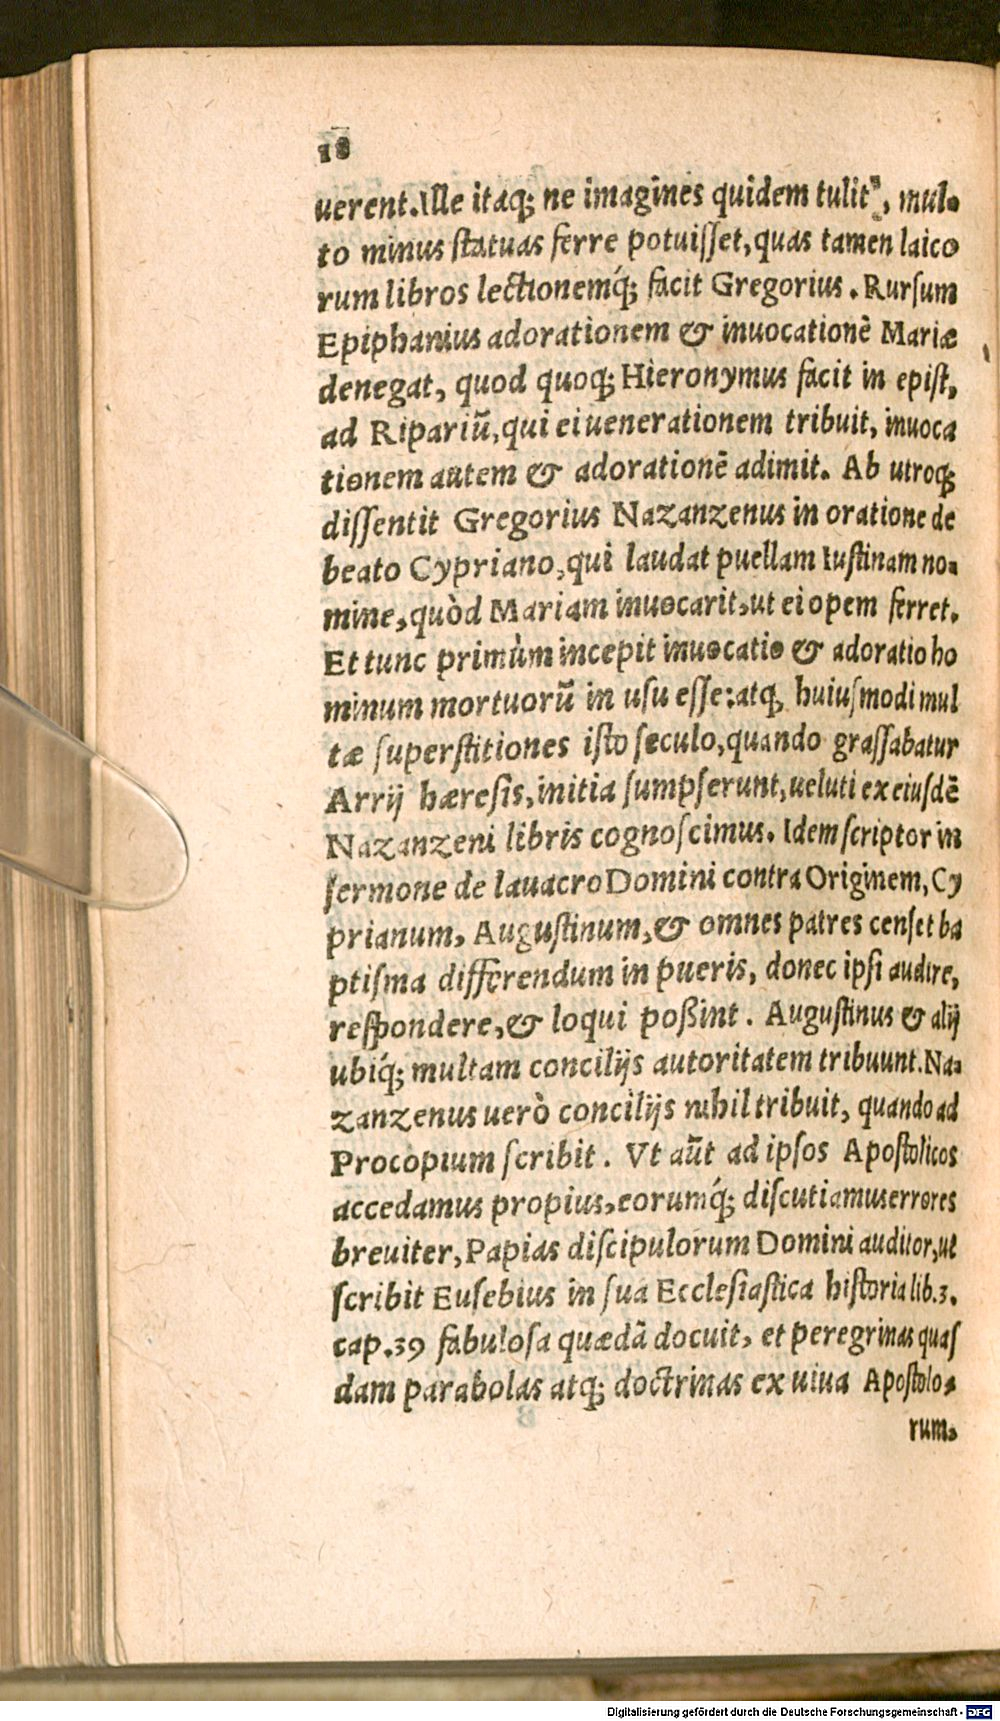 18
uerent. Ille itaq; ne imagines quidem tulit, mul-
to minus statuas ferre potuisset, quas tamen laico
rum libros lectionemq́; facit Gregorius. Rursum
Epiphanius adorationem & inuocationē Mariæ
denegat, quod quoq; Hieronymus facit in epist,
ad Ripariū, qui ei uenerationem tribuit, inuoca
tionem autem & adorationē adimit. Ab utroq;
dissentit Gregorius Nazanzenus in oratione de
beato Cypriano, qui laudat puellam Iustinam no-
mine, quòd Mariam inuocarit, ut ei opem ferret.
Et tunc primùm incepit inuocatio & adoratio ho
minum mortuorū in usu esse: atq; huiusmodi mul
tæ superstitiones isto seculo, quando grassabatur
Arrij hæresis, initia sumpserunt, ueluti ex eiusdē
Nazanzeni libris cognoscimus. Idem scriptor in
sermone de lauacro Domini contra Originem, Cy
prianum, Augustinum, & omnes patres censet ba
ptisma differendum in pueris, donec ipsi audire,
respondere, & loqui poßint. Augustinus & alij
ubiq́; multam concilijs autoritatem tribuunt. Na-
zanzenus uerò concilijs nihil tribuit, quando ad
Procopium scribit. Vt aūt ad ipsos Apostolicos
accedamus propius, eorumq́; discutiamus errores
breuiter, Papias discipulorum Domini auditor, ut
scribit Eusebius in sua Ecclesiastica historia lib.3.
cap.39 fabulosa quædā docuit, et peregrinas quas
dam parabolas atq; doctrinas ex uiua Apostolo-
rum,
Digitalisierung gefördert durch die Deutsche Forschungsgemeinschaft - DFG